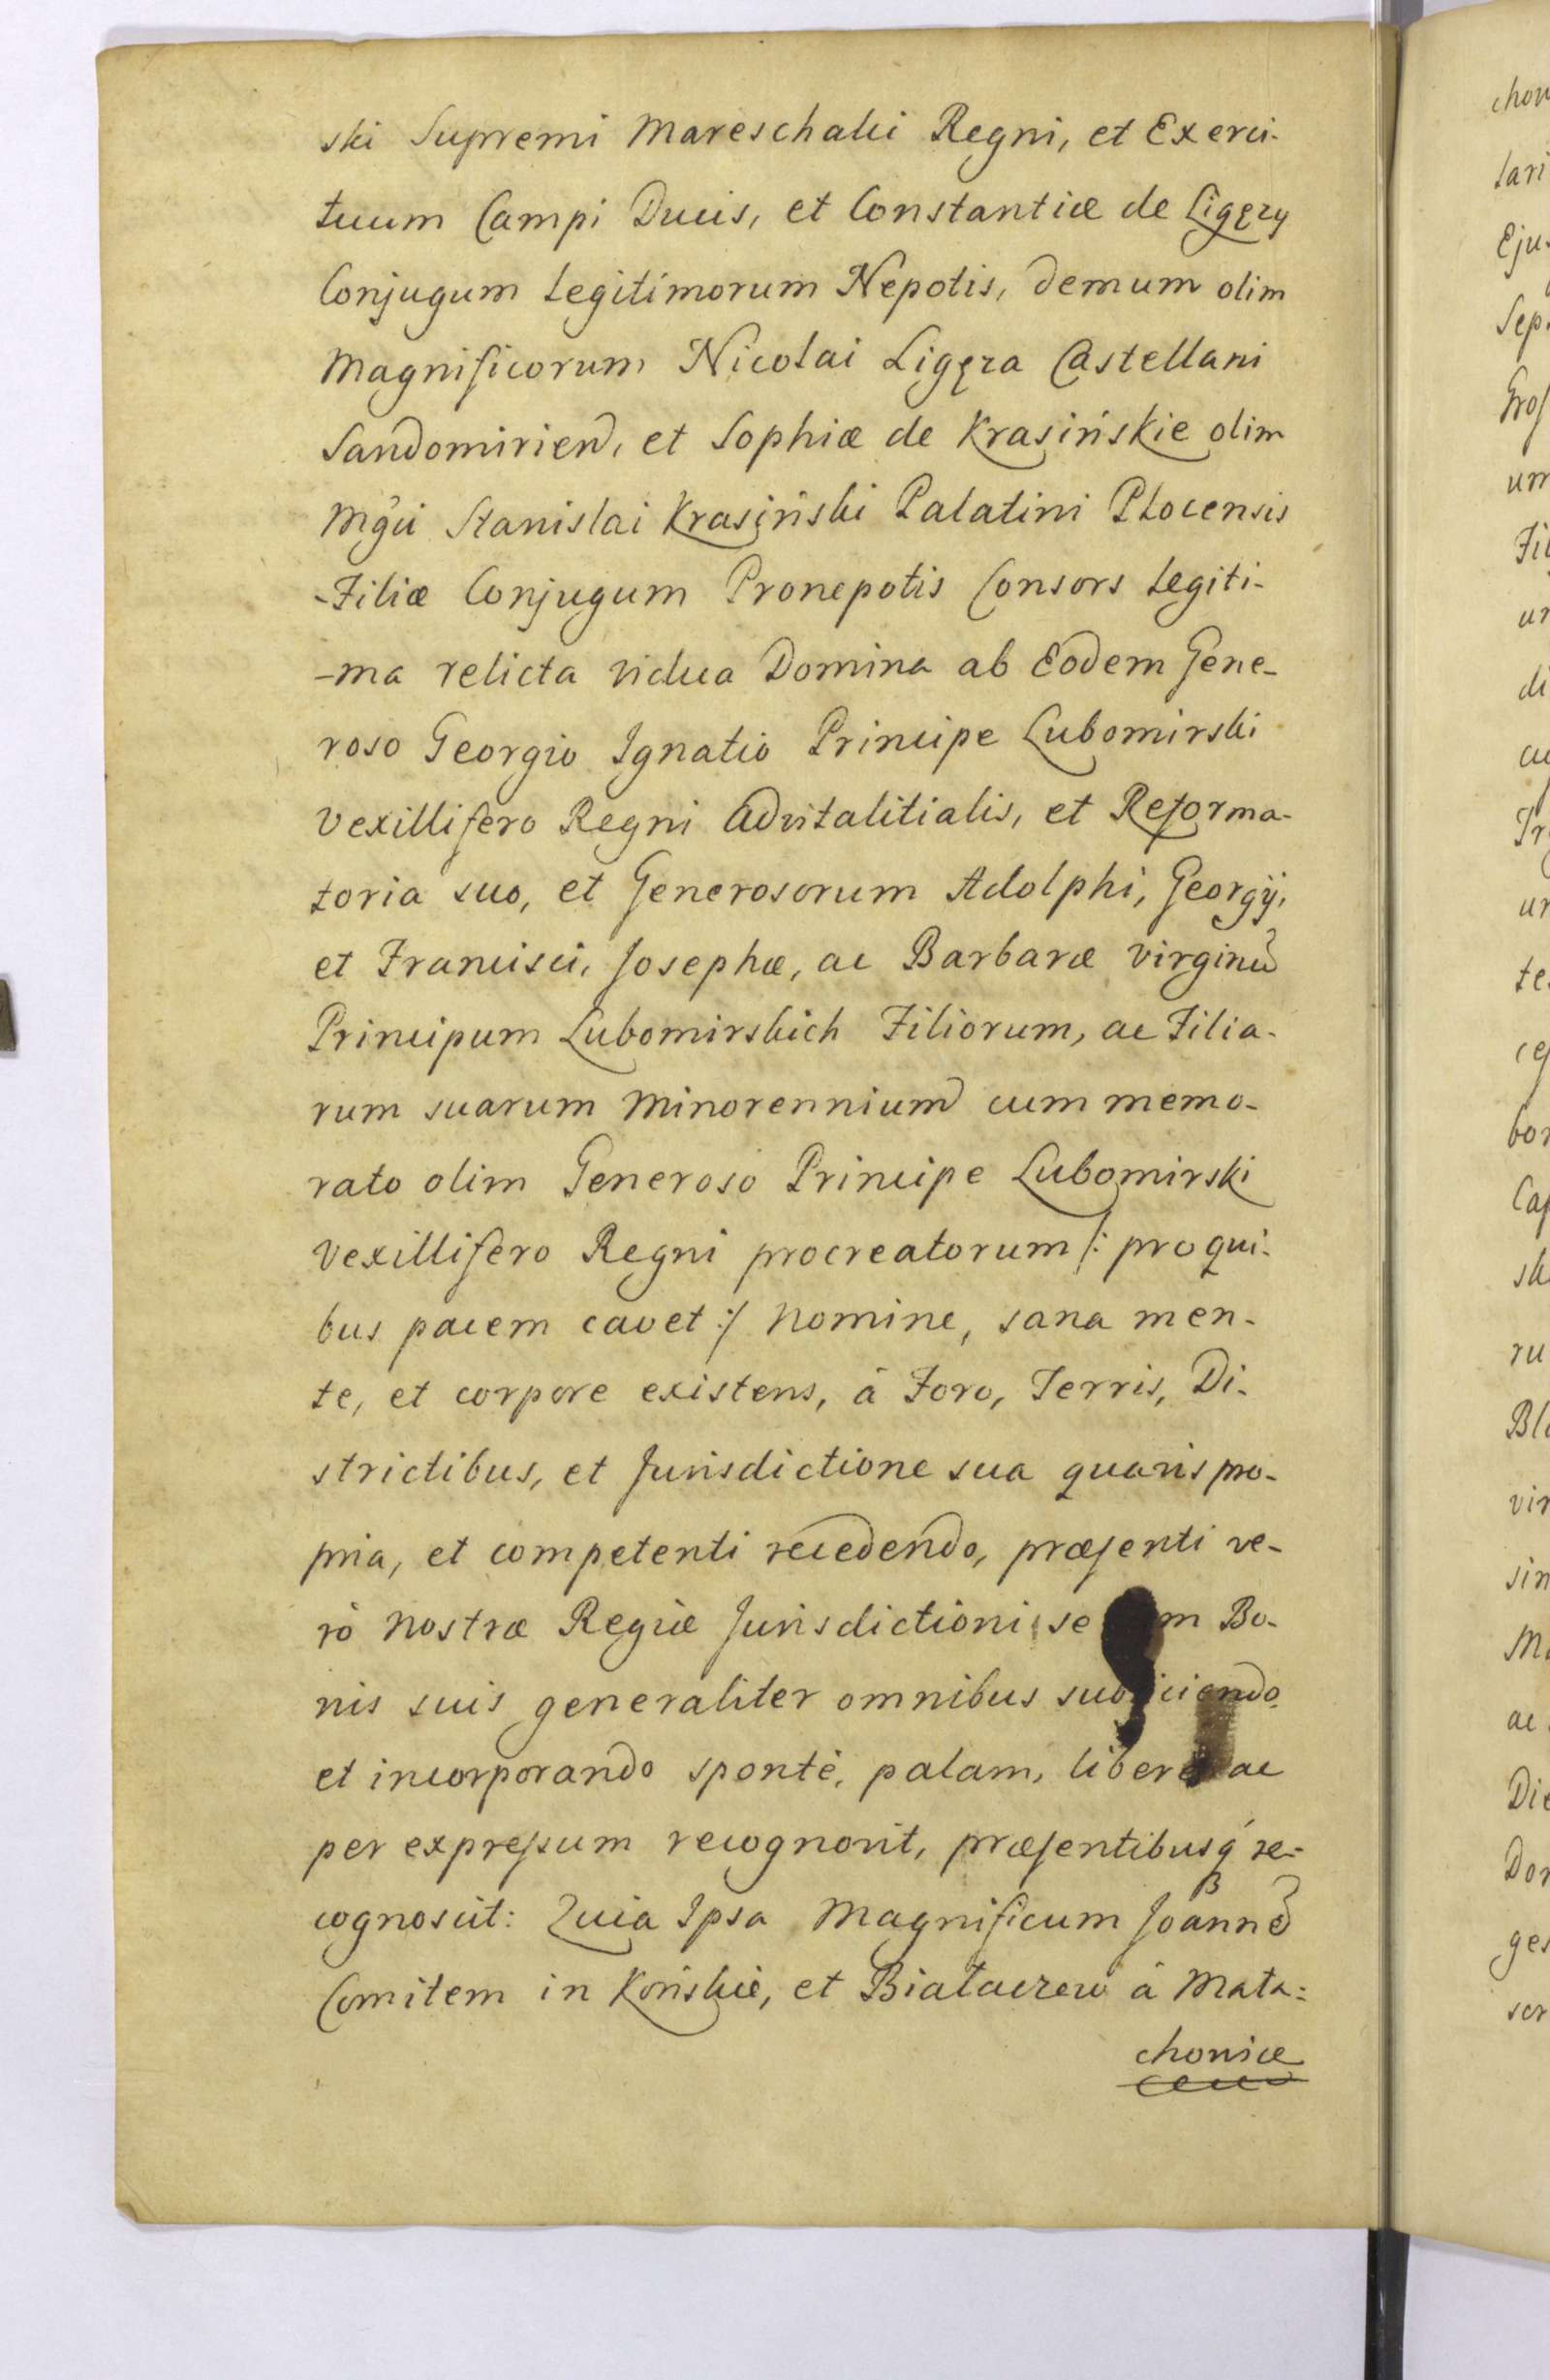 ski Supremi Mareschalci Regni, et Exerci-
tuum Campi Ducis, et Constantiæ de Ligęzy
Conjugum Legitimorum Nepotis, demum olim
Magnificorum Nicolai Ligęza Castellani
Sandomirien, et Sophiæ de Krasińskie olim
Mgci Stanislai Krasiński Palatini Plocensis
-Filiæ Conjugum Pronepotis Consors Legiti-
-ma relicta vidua Domina ab Eodem Gene-
roso Georgio Ignatio Principe Lubomirski
Vexillifero Regni Advitalitialis, et Reforma-
toria suo, et Generosorum Adolphi, Georgij,
et Francisci, Josephæ, ac Barbaræ Virginũ
Principum Lubomirskich Filiorum, ac Filia-
rum suarum Minorennium cum memo-
rato olim Generoso Principe Lubomirski
Vexillifero Regni procreatorum /: pro qui-
bus pacem cavet :/ Nomine, sana men-
te, et corpore existens, â Foro, Terris, Di-
strictibus, et Jurisdictione sua quavis pro-
pria, et competenti recedendo, præsenti ve-
rò Nostræ Regiæ Jurisdictioni se Bo-
nis suis generaliter omnibus subjiciendo
et incorporando spontè, palam, liberè ac
per expressum recognovit, præsentibusq́ re-
cognoscit: Quia Ipsa Magnificum Joannẽ
Comitem in Końskie, et Białaczew â Mała:
chovice